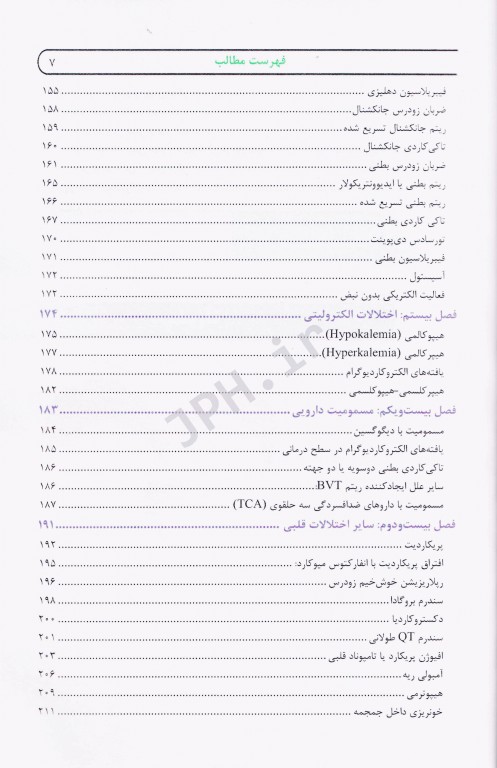 فهرست مطالب ۷
فیبریلاسیون دهلیزی ۱۵۵
ضربان زودرس جانکشنال ۱۵۸
ریتم جانکشنال تسریع شده ۱۵۹
تاکی‌کاردی جانکشنال ۱۶۰
ضربان زودرس بطنی ۱۶۱
ریتم بطنی یا ایدیوونتریکولار ۱۶۵
ریتم بطنی تسریع شده ۱۶۶
تاکی کاردی بطنی ۱۶۷
تورسادس دی‌پوینت ۱۷۰
فیبریلاسیون بطنی ۱۷۱
آسیستول ۱۷۲
فعالیت الکتریکی بدون نبض ۱۷۲
فصل بیستم: اختلالات الکترولیتی ۱۷۴
هیپوکالمی (Hypokalemia) ۱۷۵
هیپرکالمی (Hyperkalemia) ۱۷۷
یافته‌های الکتروکاردیوگرام ۱۷۸
هیپرکلسمی-هیپوکلسمی ۱۸۲
فصل بیست‌ویکم: مسمومیت دارویی ۱۸۳
مسمومیت با دیگوگسین ۱۸۴
یافته‌های الکتروکاردیوگرام در سطح درمانی ۱۸۵
تاکی‌کاردی بطنی دوسویه یا دو جهته ۱۸۶
سایر علل ایجادکننده ریتم BVT: ۱۸۶
مسمومیت با داروهای ضدافسردگی سه حلقوی (TCA) ۱۸۷
فصل بیست‌ودوم: سایر اختلالات قلبی ۱۹۱
پریکاردیت ۱۹۲
افتراق پریکاردیت با انفارکتوس میوکارد: ۱۹۵
رپلاریزیشن خوش‌خیم زودرس ۱۹۶
سندرم بروگادا ۱۹۸
دکستروکاردیا ۲۰۰
سندرم QT طولانی ۲۰۱
افیوژن پریکارد یا تامپوناد قلبی ۲۰۳
آمبولی ریه ۲۰۶
هیپوترمی ۲۰۹
خونریزی داخل جمجمه ۲۱۱
JPH.ir